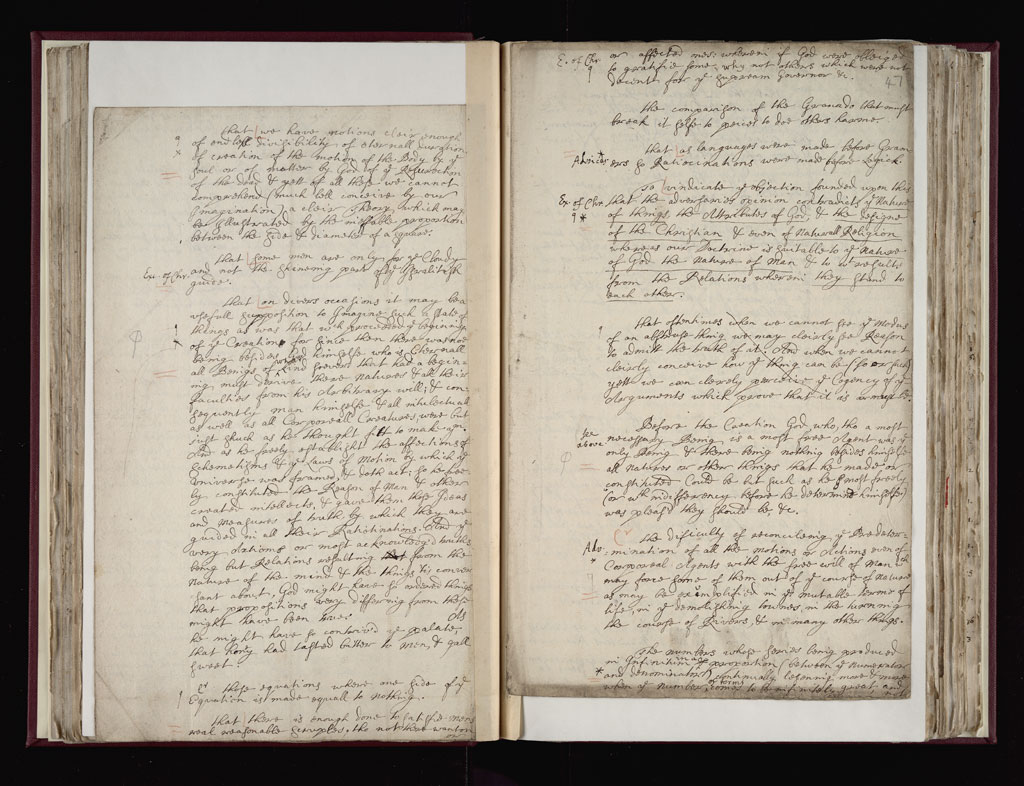 that we have notions clear enough
of endless divisibility, of eternall duration,
of creation of the motion of the Body by ye
soul or of matter by God, of ye Resurrection
of the dead & yett of all these we cannot
comprehend (much less conceive by our
Imagination) a clear Theory, which may
be illustrated by the ineffable proportion
between the side & diameter of a square.
that some men are only for ye Cloudy
Ex. of Chr. and not the shineing part of ye Israelitish
guide.
that on divers occasions it may be a
usefull supposition to Imagine such a state of
things as was that wch preceded ye beginning
of ye Creation for since then there was no
being besides God himselfe who is Eternall
all Beings of wt kind soever that had a begin-
ing must derive there natures & all their
faculties from his Arbitrary will; & con-
sequently man himselfe & all intellectuall
as well as all Corporeall Creatures, were but
just such as he thought fitt to make 'em.
And as he freely establisht the affections of
schematisms & ye Laws of motion by which ye
Universe was framed, & doth act; so he free-
ly constituted the Reason of Man & other
created intellects, & gave them those Ideas
and measures of truth by which they are
guided in all their Ratiocinations. And ye
very Axioms or most acknowledg'd truths
being but Relations resulting from the
nature of the mind & the things 'tis conver-
sant about, God might have so ordered things
that propositions very differing from these
might have been true. As
he might have so contriv'd ye palate,
that hony had tasted bitter to men, & gall
sweet.
those equations where one side of ye
Equation is made equall to nothing.
that there is enough done to satisfie men
reall reasonable scruples, tho not there wanton
Ex. of Chr or affected ones: wherein if God were obleiged
9 to gratifie some, why not others which were not
decent for ye supream Governor &c.
47
the comparison of the Granado that must
break it selfe to peices to doe others harme.
that as languages were made before Gram-
Advices ers so Ratiocinations were made before Logick.
To vindicate ye objection founded upon this
Ex. of Chr. that the adversaries opinion contradicts ye Nature
9 * of things, the Attributes of God, & the designe
of the Christian & even of Naturall Religion
whereas our Doctrine is suitable to ye Nature
of God, the nature of Man & to wt results
from the Relations wherein they stand to
each other.
that oftentimes when we cannot see ye Modus
of an abstruse thing we may clearly see Reason
to admitt the truth of it: And when we cannot
clearly conceive how ye thing can be (so or such
yett we can clearly perceive ye Cogency of ye
Arguments which prove that it is or must be.
Before the Creation God, who, tho a most
see above necessary Being is a most free Agent was ye
only thing & there being nothing besides himselfe
all Natures or other things that he made or
constituted could be but such as he most freely
(or wth indifferency before he determin'd himselfe)
was pleas'd they should be, &c.
The difficulty of reconcileing ye Predeter-
Adv. mination of all the motions or Actions even of
* Corporeal Agents with the free will of Man wch
may force some of them out of ye course of Nature
as may be exemplified in ye mutable terms of
life, in ye demolishing townes, in the turning
the course of Rivers, & in many other things.
The numbers whose series being produced
in Infinitum the proportion between ye numerator
* and denominator continually lessening more & more
when ye number comes to be infinitely great and